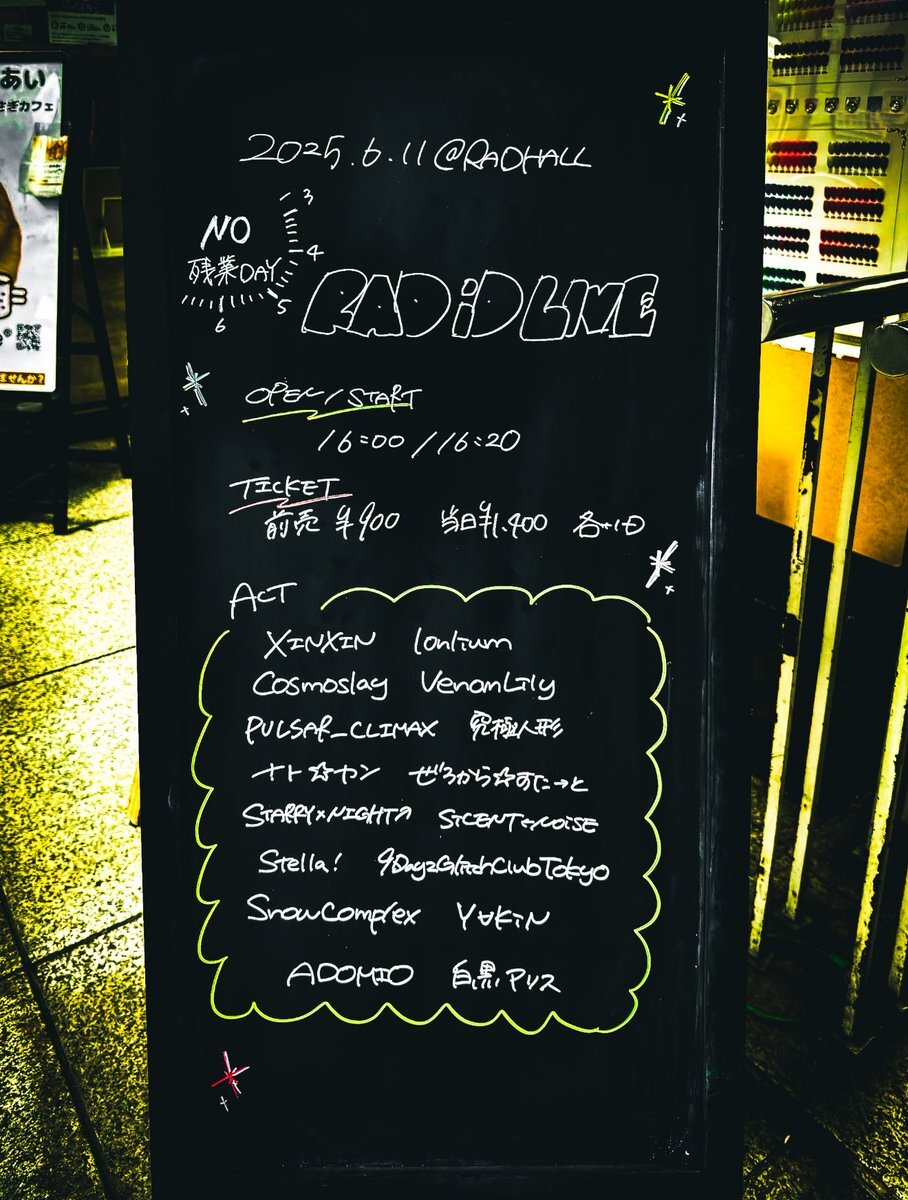 あい
さぎカフェ
ませんか?
2025.6.11 @RADHALL
NO
残業DAY
3
4
5
6
RADiD LIVE
OPEN / START
16:00 / 16:20
TICKET
前売 ¥900 当日¥1,400 各+1D
ACT
XINXIN Ionlium
Cosmoslay VenomLily
PULSAR_CLIMAX 究極人形
ナト☆カン ぜろから☆すたーと
STARRY×NIGHT↗ SILENT≠NOISE
Stella! 9DayzGlitchClubTokyo
SnowComplex Y∀KiN
ADOMIO 白黒アリス